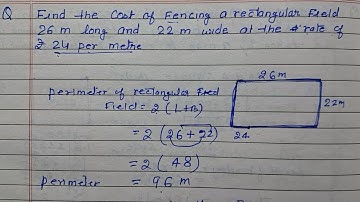 Q Find the Cost of Fencing a rectangular Field
26 m long and 22 m wide at the rate of
₹ 24 per metre
26m
perimeter of rectangular Field
Field = 2 (L+B)
22m
= 2 (26+22)
24
= 2 (48)
perimeter = 96 m